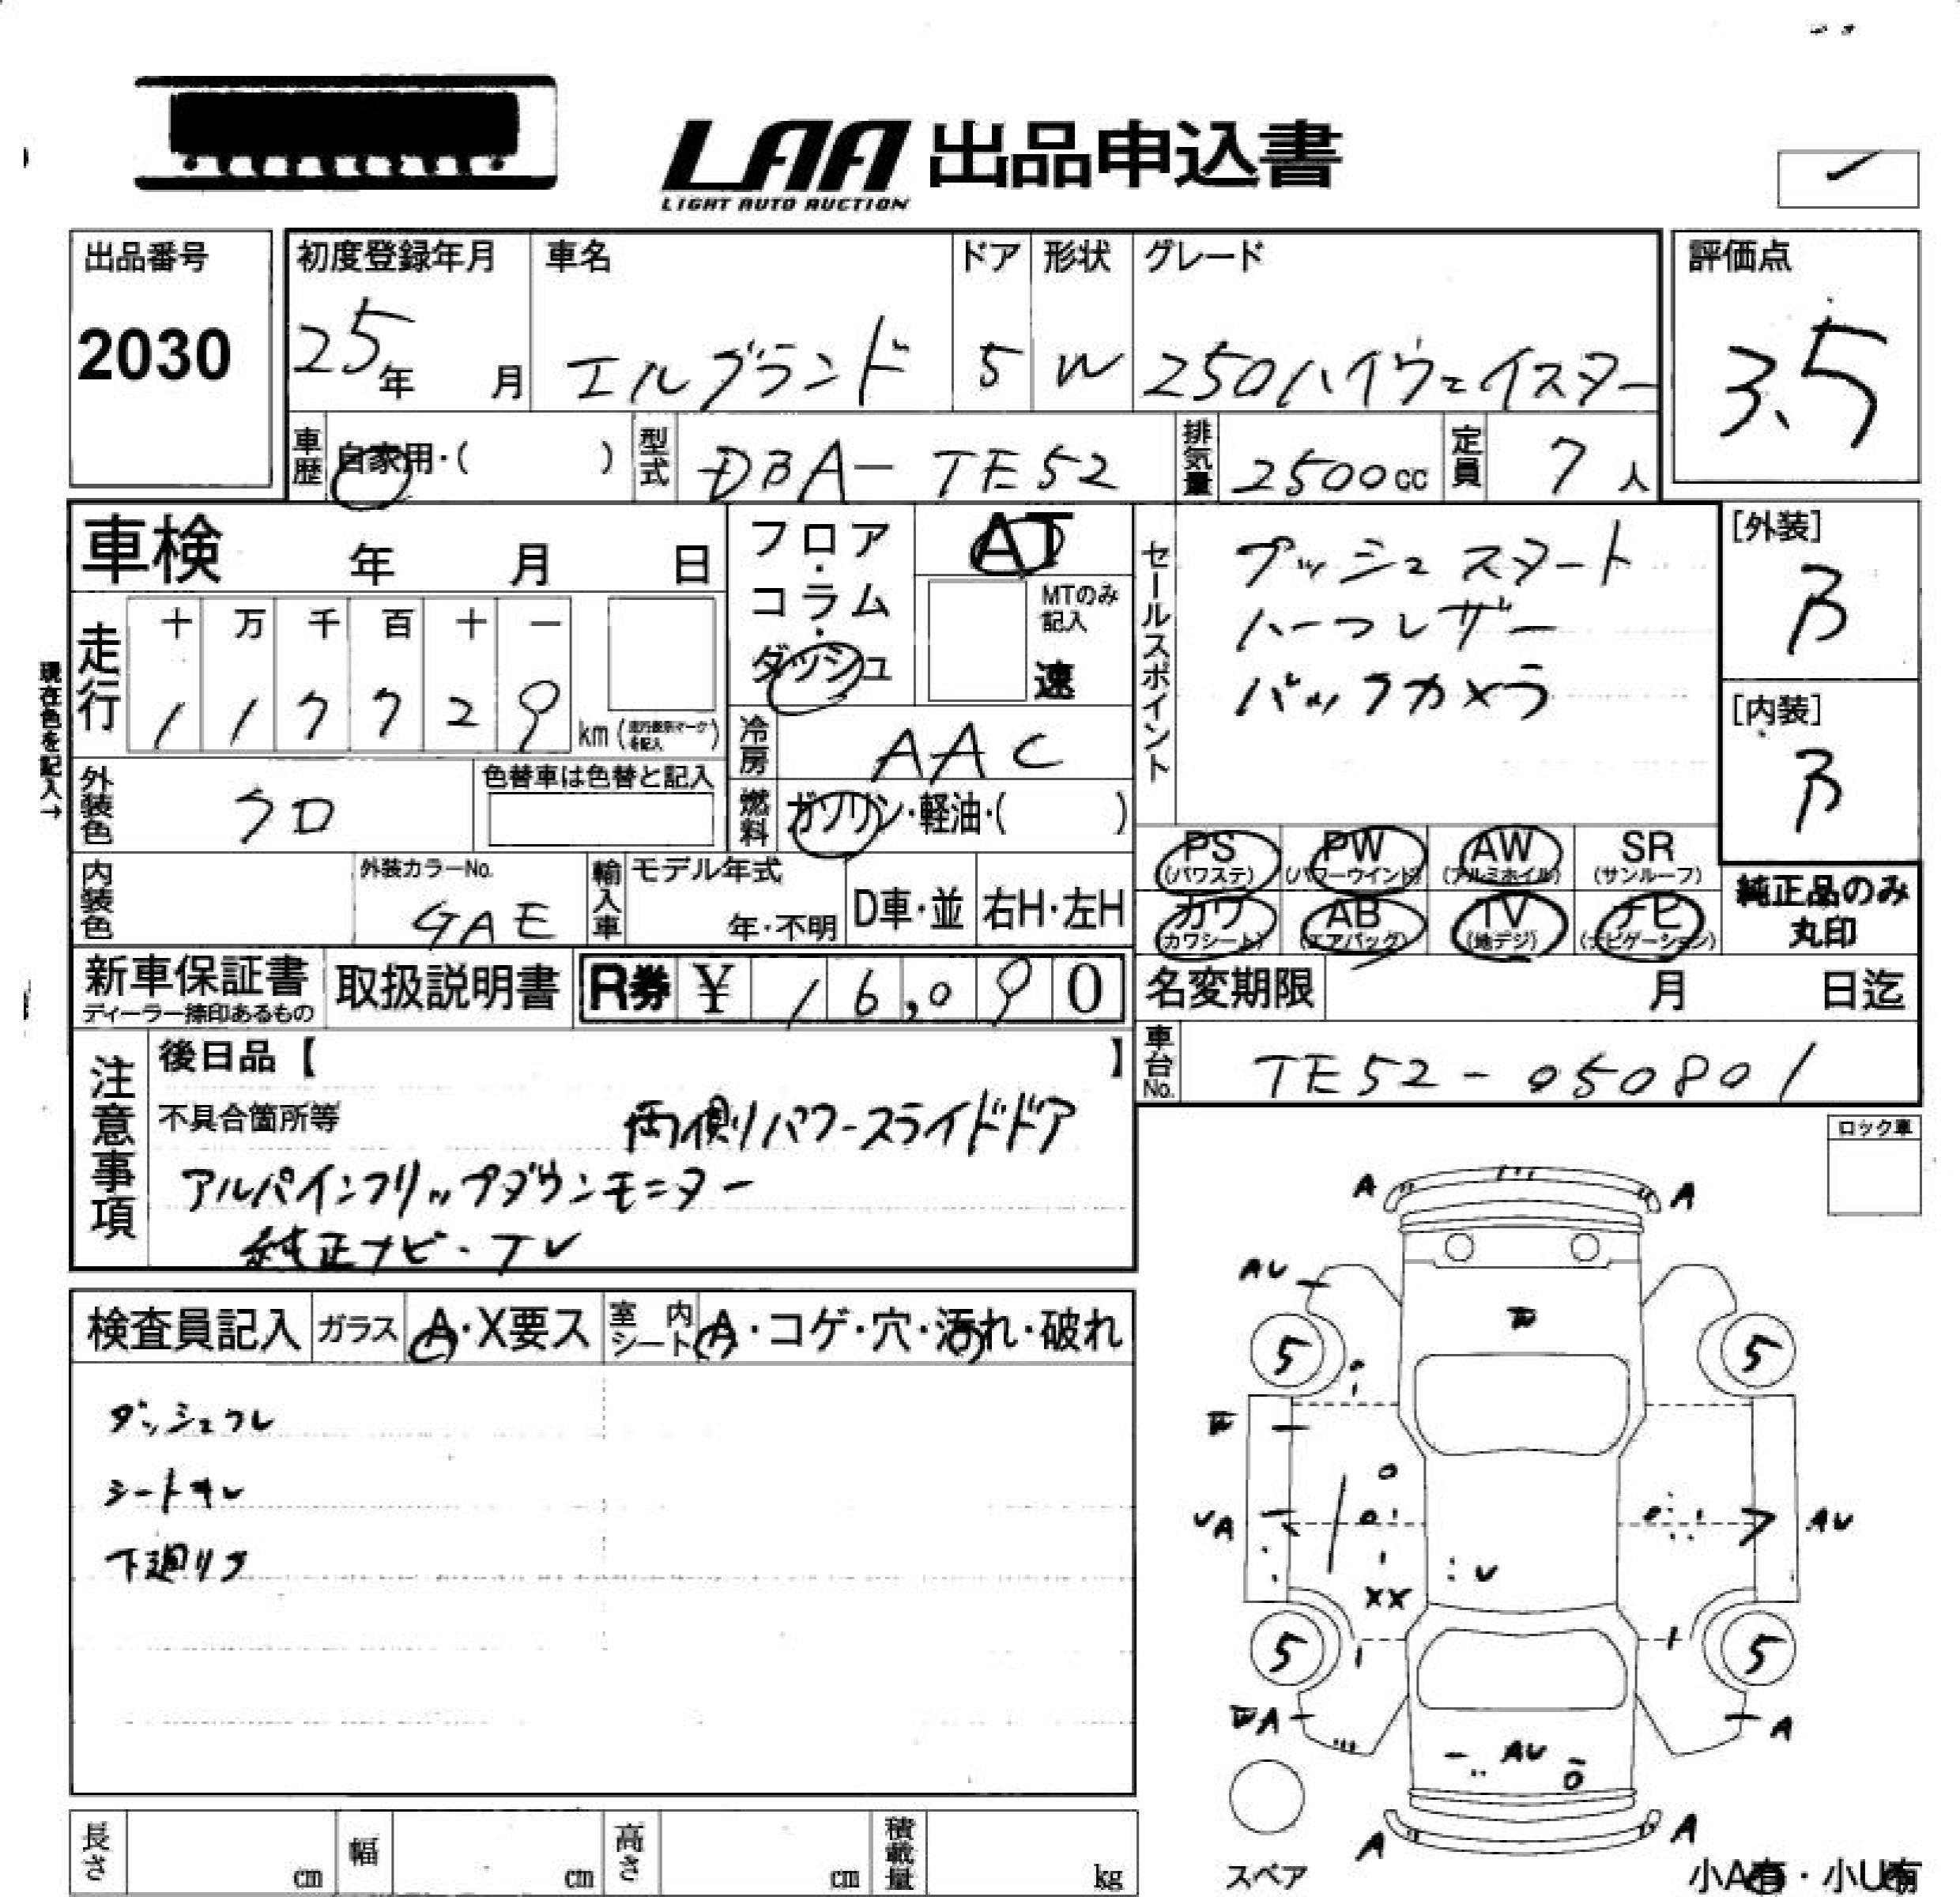 LAA 出品申込書
LIGHT AUTO AUCTION
出品番号
2030
初度登録年月
25年 月
車名
エルグランド
ドア
5
形状
W
グレード
250ハイウェイスター
評価点
3.5
車歴 自家用・( )
型式 DBA-TE52
排気量 2500cc
定員 7人
車検 年 月 日
フロア・コラム・ダッシュ
AT
MTのみ記入
速
セールスポイント
プッシュスタート
ハーフレザー
バックカメラ
[外装]
B
[内装]
B
現在色を記入→
走行
十 万 千 百 十 一
1 1 7 7 2 9 km
冷房 AAC
外装色 クロ
色替車は色替と記入
燃料 ガソリン・軽油・( )
PS (パワステ)
PW (パワーウインド)
AW (アルミホイル)
SR (サンルーフ)
カワ (カワシート)
AB (エアバッグ)
TV (地デジ)
ナビ (ナビゲーション)
純正品のみ丸印
内装色
外装カラーNo.
GAE
輸入車
モデル年式
年・不明
D車・並
右H・左H
新車保証書
ディーラー捺印あるもの
取扱説明書
R券 ¥ 16,090
名変期限 月 日迄
車台No. TE52-050801
注意事項
後日品【 】
不具合箇所等
両側パワースライドドア
アルパインフリップダウンモニター
純正ナビ・TV
ロック車
検査員記入
ガラス A・X要ス
室内シート A・コゲ・穴・汚れ・破れ
ダッシュフレ
シートキレ
下廻りサ
A
A
AU
5
5
UA
AU
XX
U
5
5
A
A
AU
A
A
スペア
長さ cm
幅 cm
高さ cm
積載量 kg
小A有・小U有